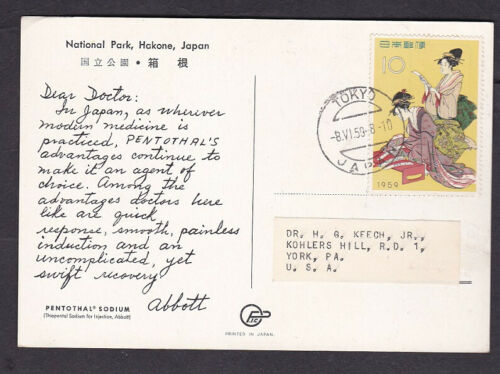 National Park, Hakone, Japan
国立公園・箱根
Dear Doctor:
In Japan, as wherever
modern medicine is
practiced, PENTOTHAL'S
advantages continue to
make it an agent of
choice. Among the
advantages doctors here
like are quick
response, smooth, painless
induction and an
uncomplicated, yet
swift recovery
Abbott
PENTOTHAL® SODIUM
(Thiopental Sodium for Injection, Abbott)
PRINTED IN JAPAN.
TOKYO
-8.VI.59.8-10
日本郵便
10
1959
DR. H. G. KEECH, JR.,
KOHLERS HILL, R.D. 1,
YORK, PA.
U. S. A.